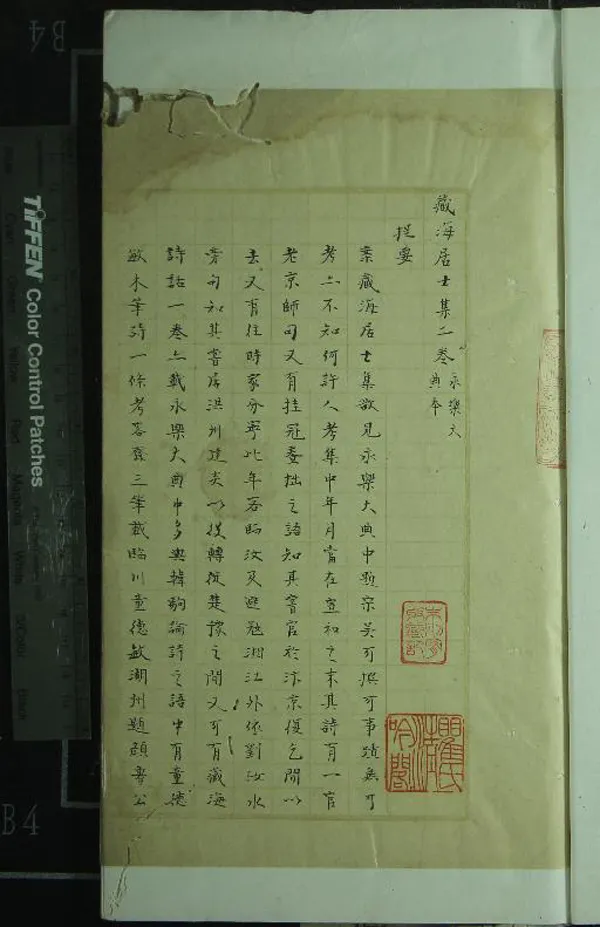 藏海居士集二卷 永樂大
典本
提要
案藏海居士集散見永樂大典中題宋吳可撰可事蹟無可
考亦不知何許人考集中年月當在宣和之末其詩有一官
老京師句又有挂冠養拙之語知其嘗官於汴京復乞閒以
去又有往時家分寧比年客臨汝及避冦湘江外依劉汝水
旁句知其嘗居洪州建炎以後轉徙楚豫之間又可有藏海
詩話一卷亦載永樂大典中多與韓駒論詩之語中有童德
敏木筆詩一條考容齋三筆載臨川童德敏湖州題顔魯公
瞿氏清吟閣
TIFFEN Color Control Patches
B4
B4